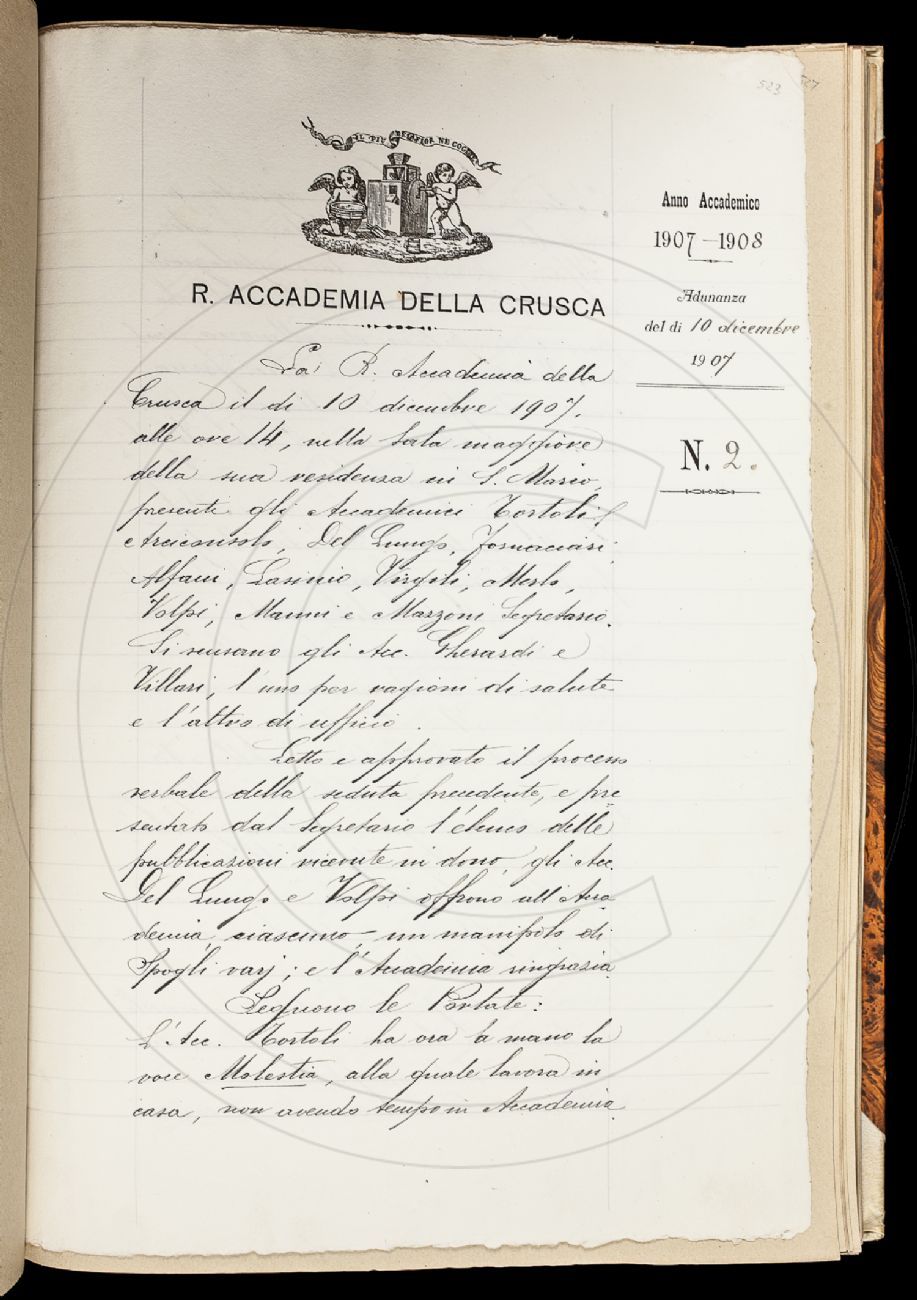 523
IL PIÙ BEL FIOR NE COGLIE
R. ACCADEMIA DELLA CRUSCA
Anno Accademico
1907-1908
Adunanza
del dì 10 dicembre
1907
N. 2.
La R. Accademia della
Crusca il dì 10 dicembre 1907,
alle ore 14, nella Sala maggiore
della sua residenza in S. Marco,
presenti gli Accademici Tortoli
Arciconsolo, Del Lungo, Fornaciari,
Alfani, Lasinio, Virgili, Merlo,
Volpi, Manni e Mazzoni Segretario.
Si scusano gli Acc. Gherardi e
Villari, l'uno per ragioni di salute
e l'altro di ufficio.
Letto e approvato il processo
verbale della seduta precedente, e pre
sentato dal Segretario l'elenco delle
pubblicazioni ricevute in dono, gli Acc.
Del Lungo e Volpi offrono all'Acca
demia, ciascuno, un manipolo di
Spogli varj; e l'Accademia ringrazia.
Seguono le Portate:
L'Acc. Tortoli ha ora a mano la
voce Molestia, alla quale lavora in
casa, non avendo tempo in Accademia.